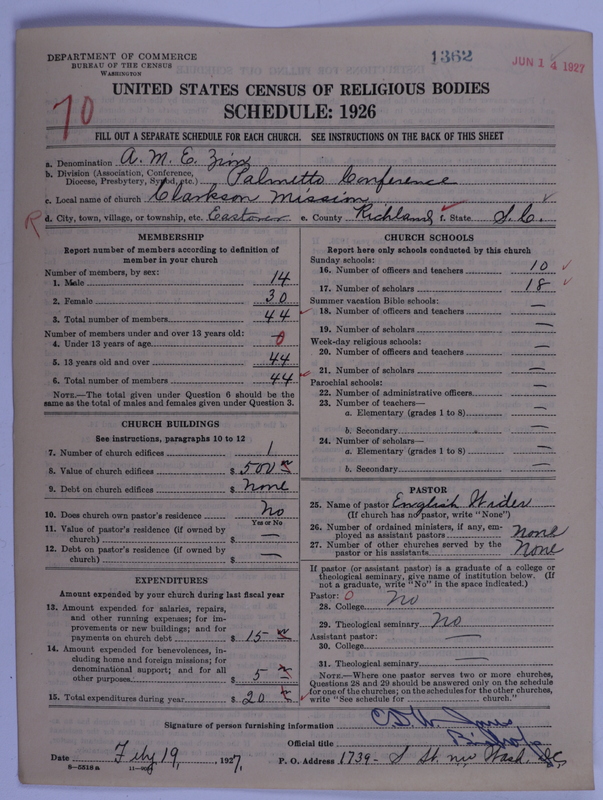 DEPARTMENT OF COMMERCE
BUREAU OF THE CENSUS
WASHINGTON
1362
JUN 14 1927
UNITED STATES CENSUS OF RELIGIOUS BODIES
SCHEDULE: 1926
70
FILL OUT A SEPARATE SCHEDULE FOR EACH CHURCH. SEE INSTRUCTIONS ON THE BACK OF THIS SHEET
a. Denomination A. M. E. Zion
b. Division (Association, Conference, Diocese, Presbytery, Synod, etc.) Palmetto Conference
c. Local name of church Clarkson Mission
R
d. City, town, village, or township, etc. Eastover e. County Richland f. State S.C.
MEMBERSHIP
Report number of members according to definition of
member in your church
Number of members, by sex:
1. Male 14
2. Female 30
3. Total number of members 44
Number of members under and over 13 years old:
4. Under 13 years of age 0
5. 13 years old and over 44
6. Total number of members 44
NOTE.—The total given under Question 6 should be
same as the total of males and females given under Question 3.
CHURCH BUILDINGS
See instructions, paragraphs 10 to 12
7. Number of church edifices 1
8. Value of church edifices $ 500
9. Debt on church edifices $ None
10. Does church own pastor's residence No
Yes or No
11. Value of pastor's residence (if owned by
church) $ —
12. Debt on pastor's residence (if owned by
church) $ —
EXPENDITURES
Amount expended by your church during last fiscal year
13. Amount expended for salaries, repairs,
and other running expenses; for im-
provements or new buildings; and for
payments on church debt $ 15
14. Amount expended for benevolences, in-
cluding home and foreign missions; for
denominational support; and for all
other purposes $ 5
15. Total expenditures during year $ 20
CHURCH SCHOOLS
Report here only schools conducted by this church
Sunday schools:
16. Number of officers and teachers 10
17. Number of scholars 18
Summer vacation Bible schools:
18. Number of officers and teachers —
19. Number of scholars —
Week-day religious schools:
20. Number of officers and teachers —
21. Number of scholars —
Parochial schools:
22. Number of administrative officers —
23. Number of teachers—
a. Elementary (grades 1 to 8) —
b. Secondary —
24. Number of scholars—
a. Elementary (grades 1 to 8) —
b. Secondary —
PASTOR
25. Name of pastor English
(If church has no pastor, write "None")
26. Number of ordained ministers, if any, em-
ployed as assistant pastors None
27. Number of other churches served by the
pastor or his assistants None
If pastor (or assistant pastor) is a graduate of a college or
theological seminary, give name of institution below. (If
not a graduate, write "No" in the space indicated.)
Pastor: 0
28. College No
29. Theological seminary No
Assistant pastor:
30. College —
31. Theological seminary —
NOTE.—Where one pastor serves two or more churches,
Questions 28 and 29 should be answered only on the schedule
for one of the churches; on the schedules for the other churches,
write "See schedule for church."
Signature of person furnishing information
Official title Bishop
Date Feby 19, 1927. P. O. Address 1739- S St. nw Wash. DC
8—5518a